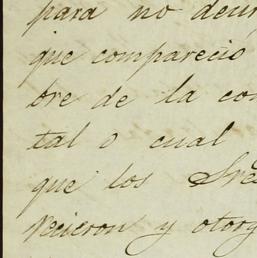 para no decir
que compareció
bre de la co
tal o cual
que los Sres
recieron y otorg